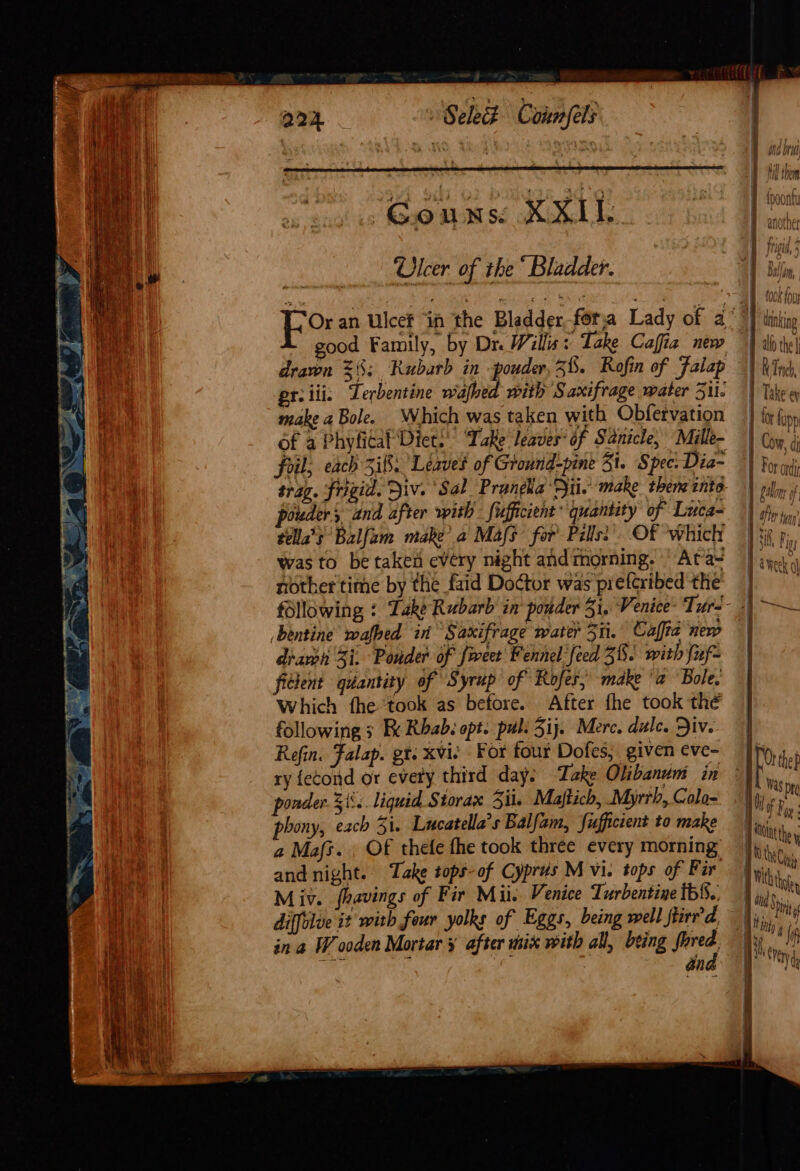 224 Select Counsels
Couns. XXII.
Ulcer of the Bladder.
FOr an Ulcer in the Bladder for a Lady of a
good Family, by Dr. Willis: Take Cassia new
drawn ℥ß. Rubarb in pouder, ʒß. Rosin of Jalap
gr. iiii. Terbentine washed with Saxifrage water ʒii.
make a Bole. Which was taken with Observation
of a Physical Diet. Take leaves of Sanicle, Mille-
foil, each ʒiß. Leaves of Ground-pine ʒi. Spec. Dia-
trag. frigid. ℈iv. Sal Prunella ℈ii. make them into
pouder; and after with sufficient quantity of Luca-
tella's Balsam make a Mass for Pills. Of which
was to be taken every night and morning. At a-
nother time by the said Doctor was prescribed the
following: Take Rubarb in pouder ʒi. Venice Tur-
bentine washed in Saxifrage water ʒii. Cassia new
drawn ℥i. Pouder of sweet Fennel seed ʒß. with suf-
ficient quantity of Syrup of Roses, make a Bole.
Which she took as before. After she took the
following; ℞ Rhab. opt. pul. ʒij. Merc. dulc. ℈iv.
Resin. Jalap. gr. xvi. For four Doses, given eve-
ry second or every third day. Take Olibanum in
pouder ℥ß. liquid Storax ʒii. Mastich, Myrrh, Colo-
phony, each ʒi. Lucatella's Balsam, sufficient to make
a Mass. Of these she took three every morning
and night. Take tops of Cyprus M vi. tops of Fir
M iv. shavings of Fir M ii. Venice Turbentine ℔ß.
dissolve it with four yolks of Eggs, being well stirr'd
in a Wooden Mortar; after mix with all, being shred
and